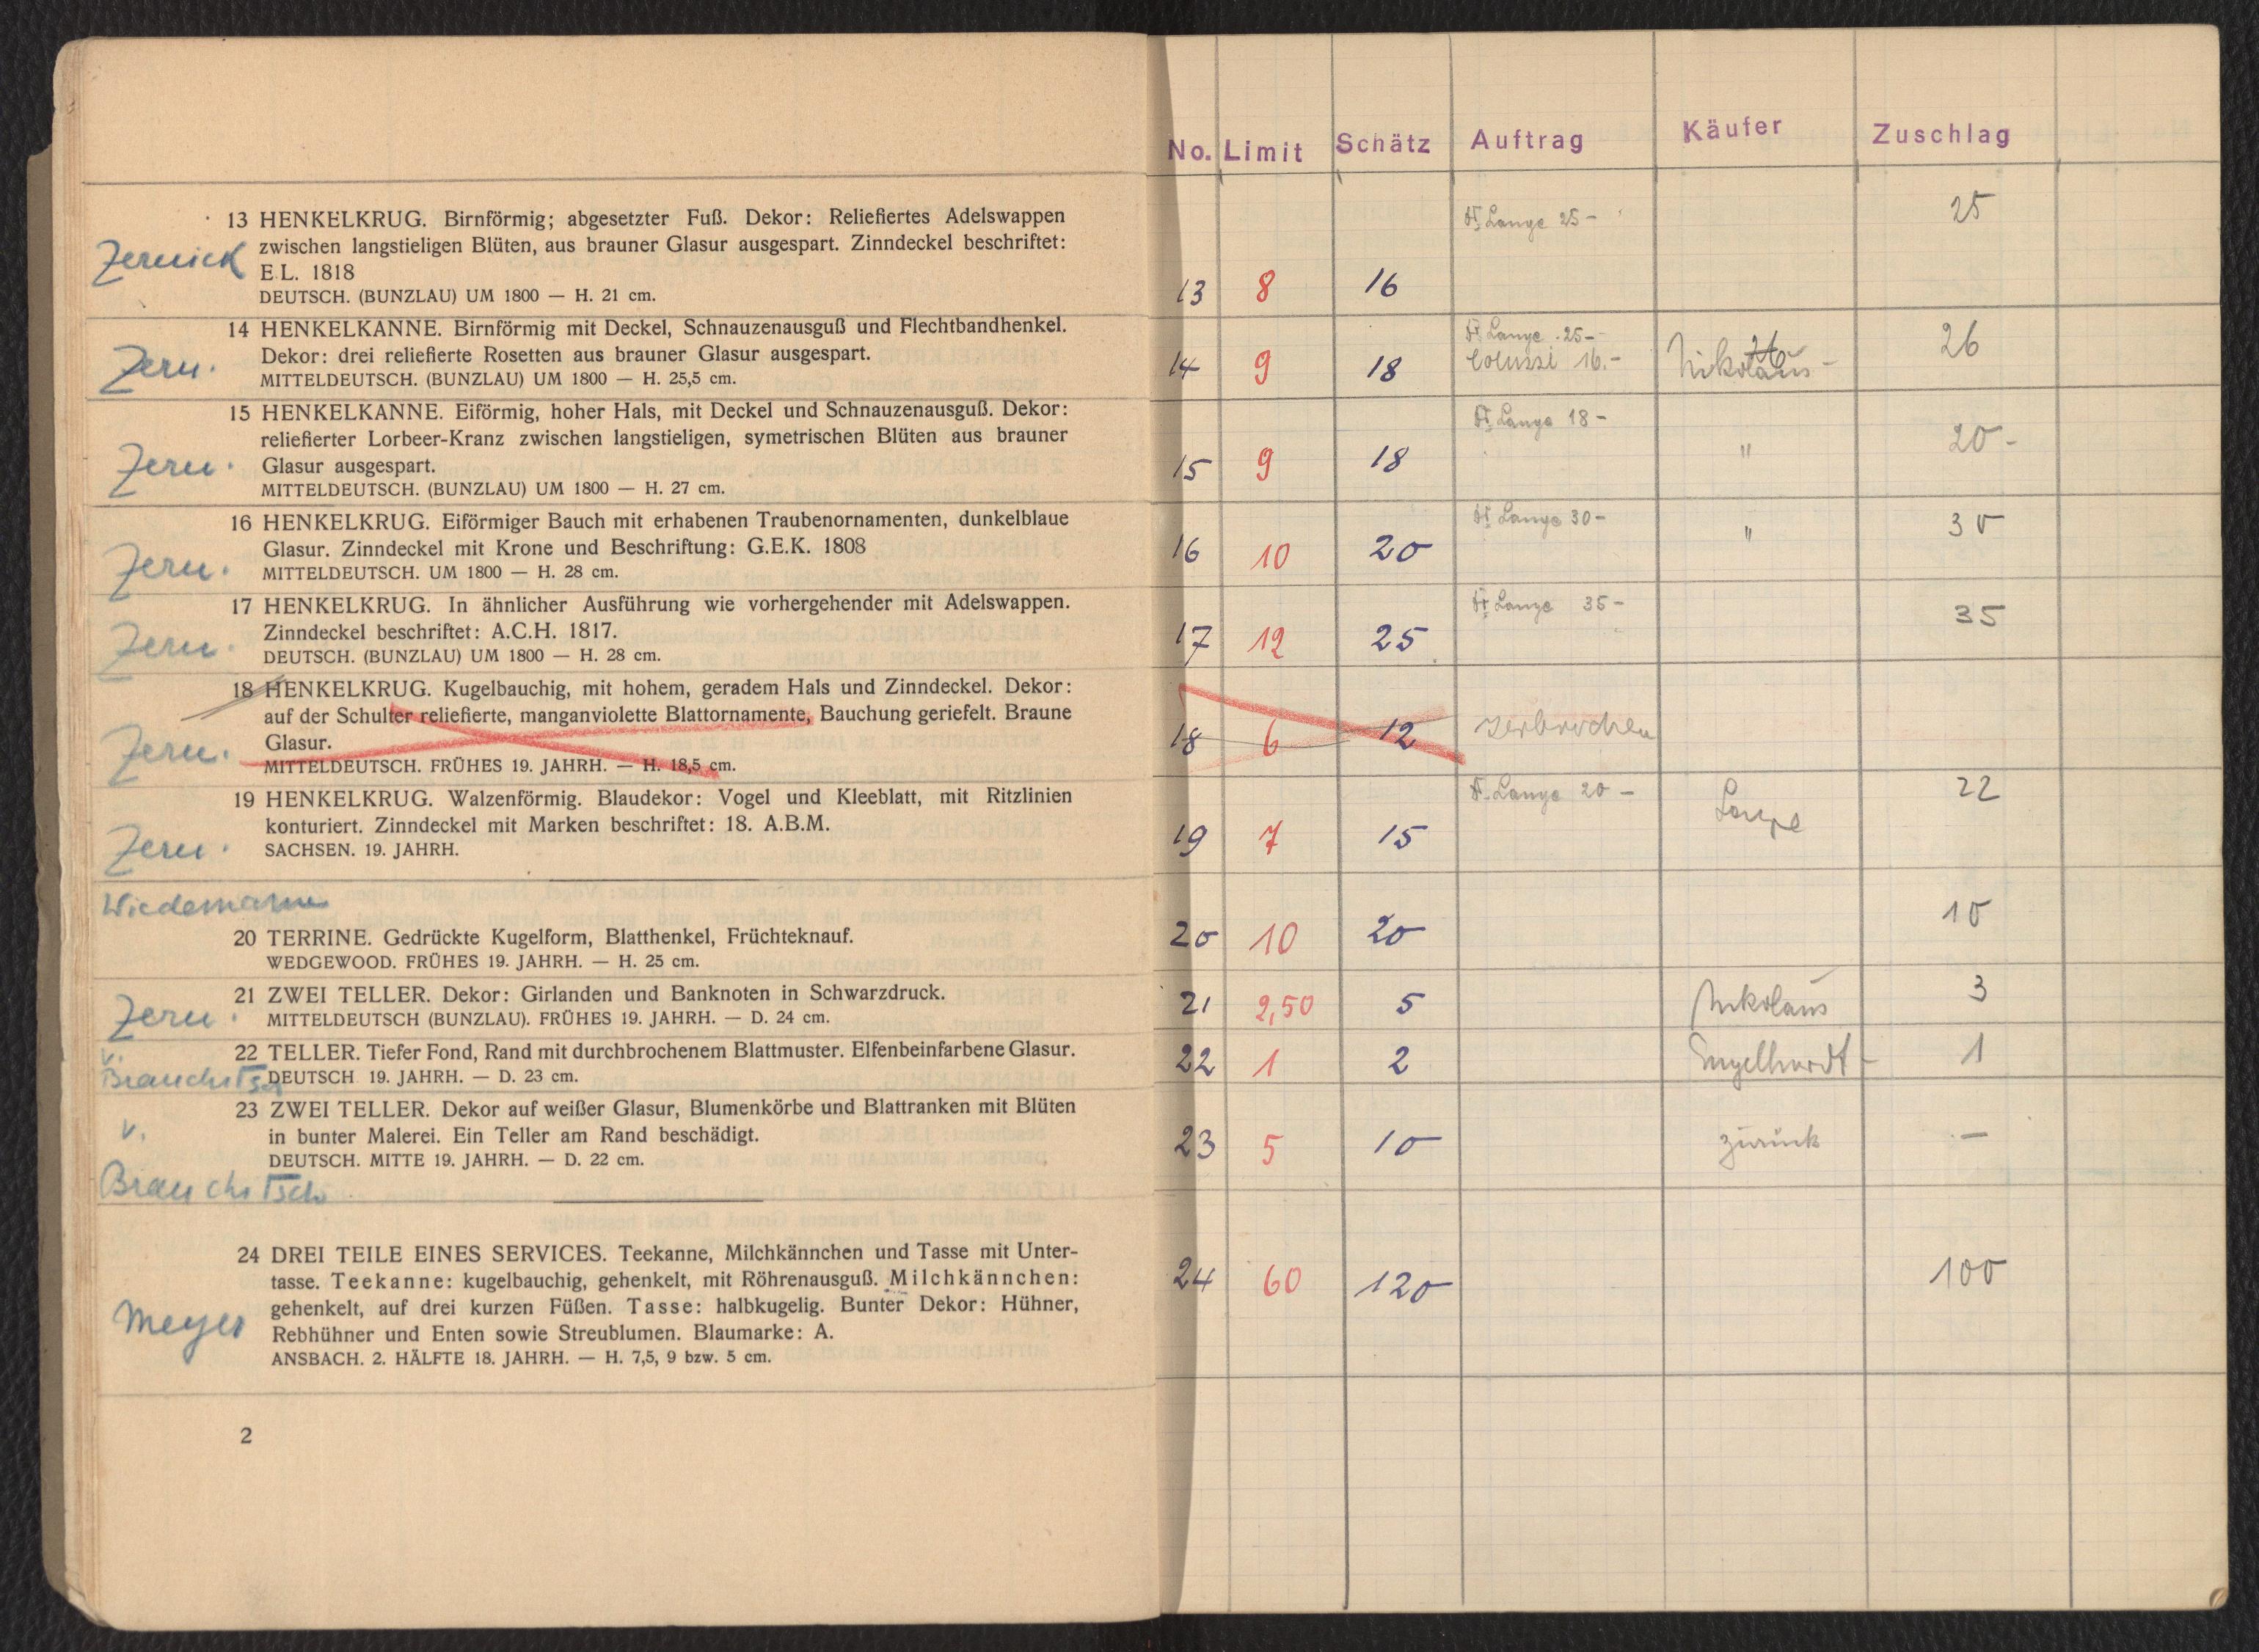 13 HENKELKRUG. Birnförmig; abgesetzter Fuß. Dekor: Reliefiertes Adelswappen
Zernick zwischen langstieligen Blüten, aus brauner Glasur ausgespart. Zinndeckel beschriftet:
E.L. 1818
DEUTSCH. (BUNZLAU) UM 1800 — H. 21 cm.
14 HENKELKANNE. Birnförmig mit Deckel, Schnauzenausguß und Flechtbandhenkel.
Zern. Dekor: drei reliefierte Rosetten aus brauner Glasur ausgespart.
MITTELDEUTSCH. (BUNZLAU) UM 1800 — H. 25,5 cm.
15 HENKELKANNE. Eiförmig, hoher Hals, mit Deckel und Schnauzenausguß. Dekor:
reliefierter Lorbeer-Kranz zwischen langstieligen, symetrischen Blüten aus brauner
Zern. Glasur ausgespart.
MITTELDEUTSCH. (BUNZLAU) UM 1800 — H. 27 cm.
16 HENKELKRUG. Eiförmiger Bauch mit erhabenen Traubenornamenten, dunkelblaue
Glasur. Zinndeckel mit Krone und Beschriftung: G.E.K. 1808
Zern. MITTELDEUTSCH. UM 1800 — H. 28 cm.
17 HENKELKRUG. In ähnlicher Ausführung wie vorhergehender mit Adelswappen.
Zern. Zinndeckel beschriftet: A.C.H. 1817.
DEUTSCH. (BUNZLAU) UM 1800 — H. 28 cm.
18 HENKELKRUG. Kugelbauchig, mit hohem, geradem Hals und Zinndeckel. Dekor:
auf der Schulter reliefierte, manganviolette Blattornamente, Bauchung geriefelt. Braune
Zern. Glasur.
MITTELDEUTSCH. FRÜHES 19. JAHRH. — H. 18,5 cm.
19 HENKELKRUG. Walzenförmig. Blaudekor: Vogel und Kleeblatt, mit Ritzlinien
konturiert. Zinndeckel mit Marken beschriftet: 18. A.B.M.
Zern. SACHSEN. 19. JAHRH.
Wiedemann
20 TERRINE. Gedrückte Kugelform, Blatthenkel, Früchteknauf.
WEDGEWOOD. FRÜHES 19. JAHRH. — H. 25 cm.
21 ZWEI TELLER. Dekor: Girlanden und Banknoten in Schwarzdruck.
Zern. MITTELDEUTSCH (BUNZLAU). FRÜHES 19. JAHRH. — D. 24 cm.
v. 22 TELLER. Tiefer Fond, Rand mit durchbrochenem Blattmuster. Elfenbeinfarbene Glasur.
Brauchitsch DEUTSCH 19. JAHRH. — D. 23 cm.
23 ZWEI TELLER. Dekor auf weißer Glasur, Blumenkörbe und Blattranken mit Blüten
v. in bunter Malerei. Ein Teller am Rand beschädigt.
DEUTSCH. MITTE 19. JAHRH. — D. 22 cm.
Brauchitsch
24 DREI TEILE EINES SERVICES. Teekanne, Milchkännchen und Tasse mit Unter-
tasse. Teekanne: kugelbauchig, gehenkelt, mit Röhrenausguß. Milchkännchen:
gehenkelt, auf drei kurzen Füßen. Tasse: halbkugelig. Bunter Dekor: Hühner,
Meyer Rebhühner und Enten sowie Streublumen. Blaumarke: A.
ANSBACH. 2. HÄLFTE 18. JAHRH. — H. 7,5, 9 bzw. 5 cm.
2
No. Limit Schätz Auftrag Käufer Zuschlag
Lange 25 – 25
13 8 16
Lange 25 – 26
14 9 18 16.– Nikolaus – 26
Lange 18 –
15 9 18 " 20 –
Lange 30 –
16 10 20 " 30
Lange 35 –
17 12 25 35
18 6 12 zerbrochen
Lange 20 – 22
19 7 15 Lange
20 10 20 10
21 2,50 5 Nikolaus 3
22 1 2 Engelhardt – 1
23 5 10 zurück —
24 60 120 100